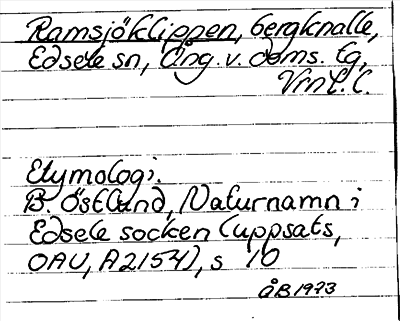 Ramsjöklippen, bergknalle,
Edsele sn, Ång. v. doms. tg,
Vml. C.
Etymologi.
B. Östlund, Naturnamn i
Edsele socken (uppsats,
OAU, A2154), s 10
ÅB 1973